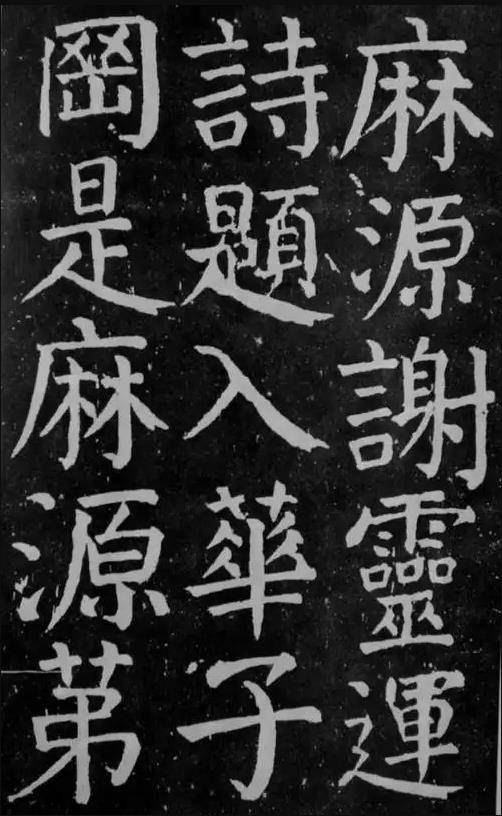 麻源謝靈運
詩題入華子
罡是麻源苐